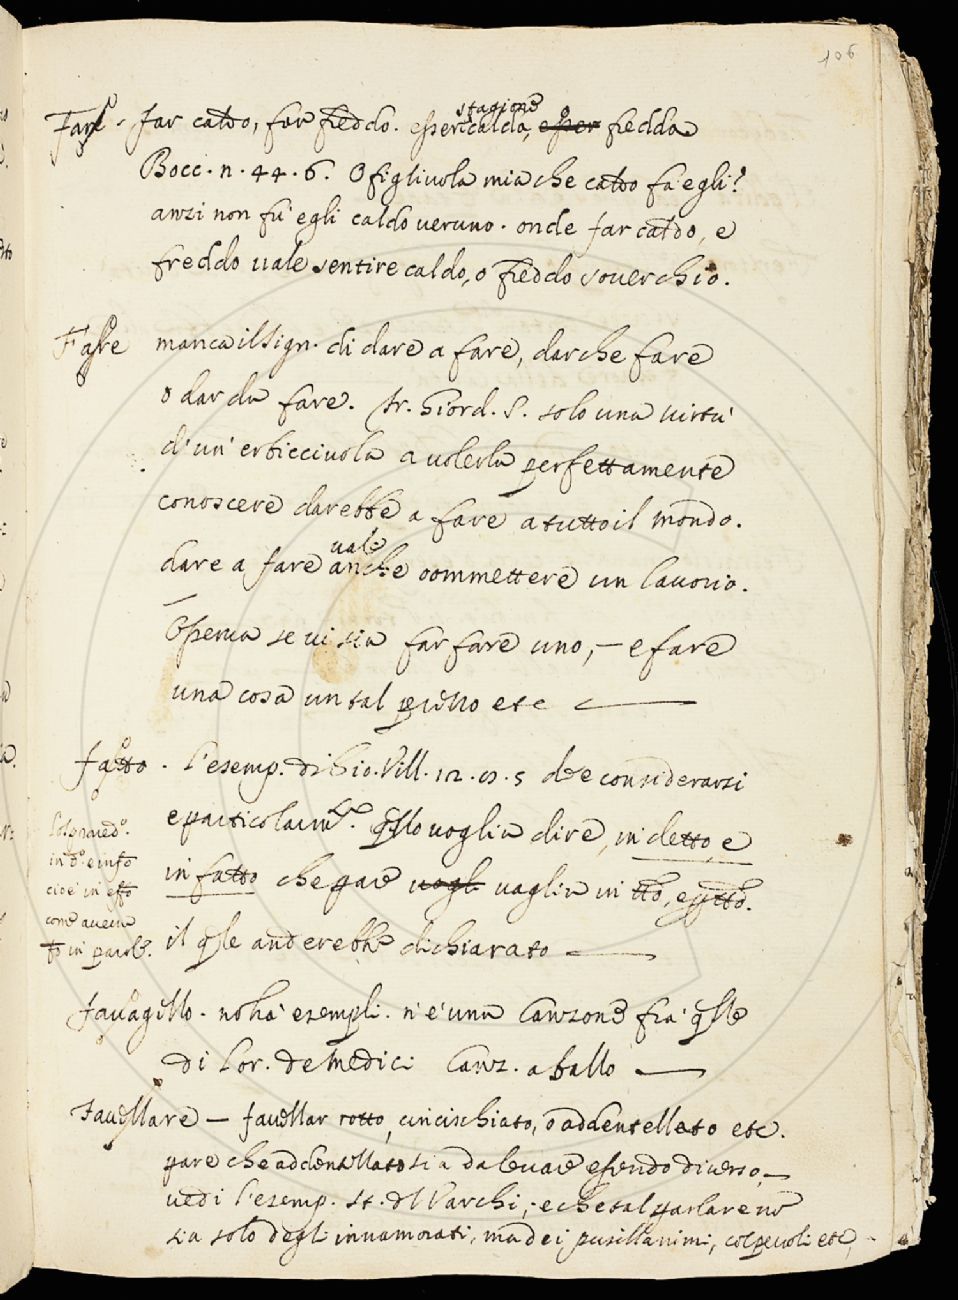 106
Fare. far caldo, far freddo. esser stagione calda, esser fredda
Bocc. n. 44. 6. O figliuola mia che caldo fa egli?
anzi non fu egli caldo veruno. onde far caldo, e
freddo vale sentire caldo, o freddo souerchio.
Fare manca il sign. di dare a fare, dar che fare
o dar da fare. fr. Giord. S. solo una uirtu'
d'un' erbicciuola a volerla perfettamente
conoscere darebbe a fare a tutto il mondo.
dare a fare vale anche commettere un lauorio.
Osserua se ui sia far fare uno, — e fare
una cosa un tal p etc
fatto. l'esemp. di Gio. Vill. 12. 5 dee considerarsi
e particolarmte. qsto voglia dire, in detto, e
in fatto che pare uogl vaglia in
cioè in
come aueua
il qle anderebbe dichiarato —
fauagello. no ha' esempli. n'è una Canzone fra' qlle
di Lor. de Medici Canz. a ballo —
Fauellare — fauellar rotto, cincischiato, o addentellato etc.
pare che addentellato sia da leuare essendo diuerso, —
uedi l'esemp. st. dl Varchi, e che tal parlare nō
sia solo degl innamorati, ma dei pusillanimi, colpeuoli etc.